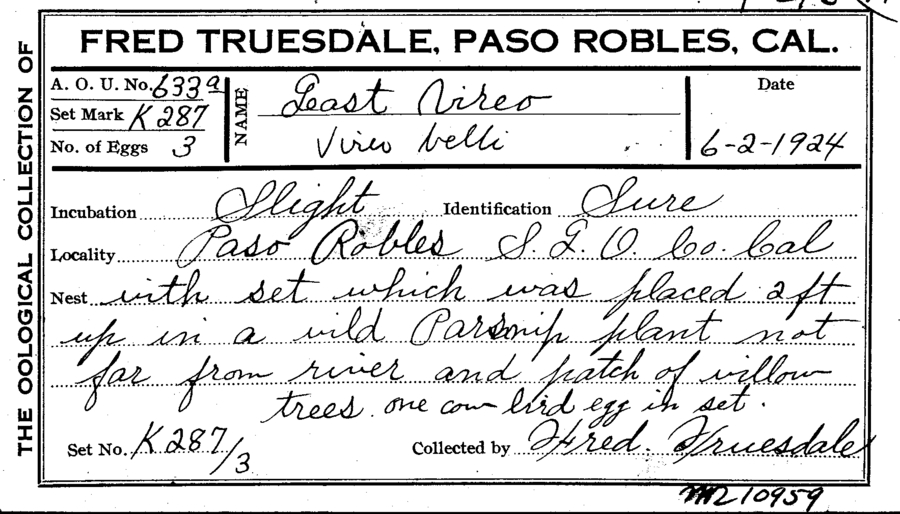 FRED TRUESDALE, PASO ROBLES, CAL.
THE OOLOGICAL COLLECTION OF
A. O. U. No. 633a
Set Mark K 287
No. of Eggs 3
NAME
Least Vireo
Vireo belli
Date
6-2-1924
Incubation Slight Identification Sure
Locality Paso Robles S. L. O. Co. Cal
Nest with set which was placed 2 ft
up in a wild Parsnip plant not
far from river and patch of willow
trees. one cow bird egg in set.
Set No. K 287/3 Collected by Fred. Truesdale
10959